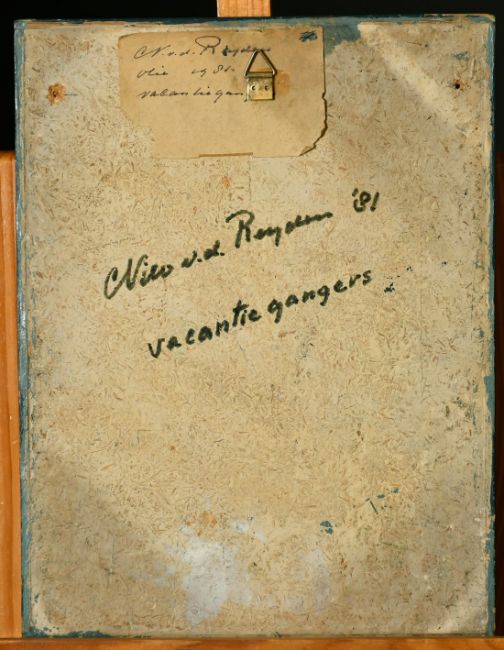 N.v.d. Reyden
olie 1981.
vacantiegan
Nico v.d. Reyden '81
vacantiegangers